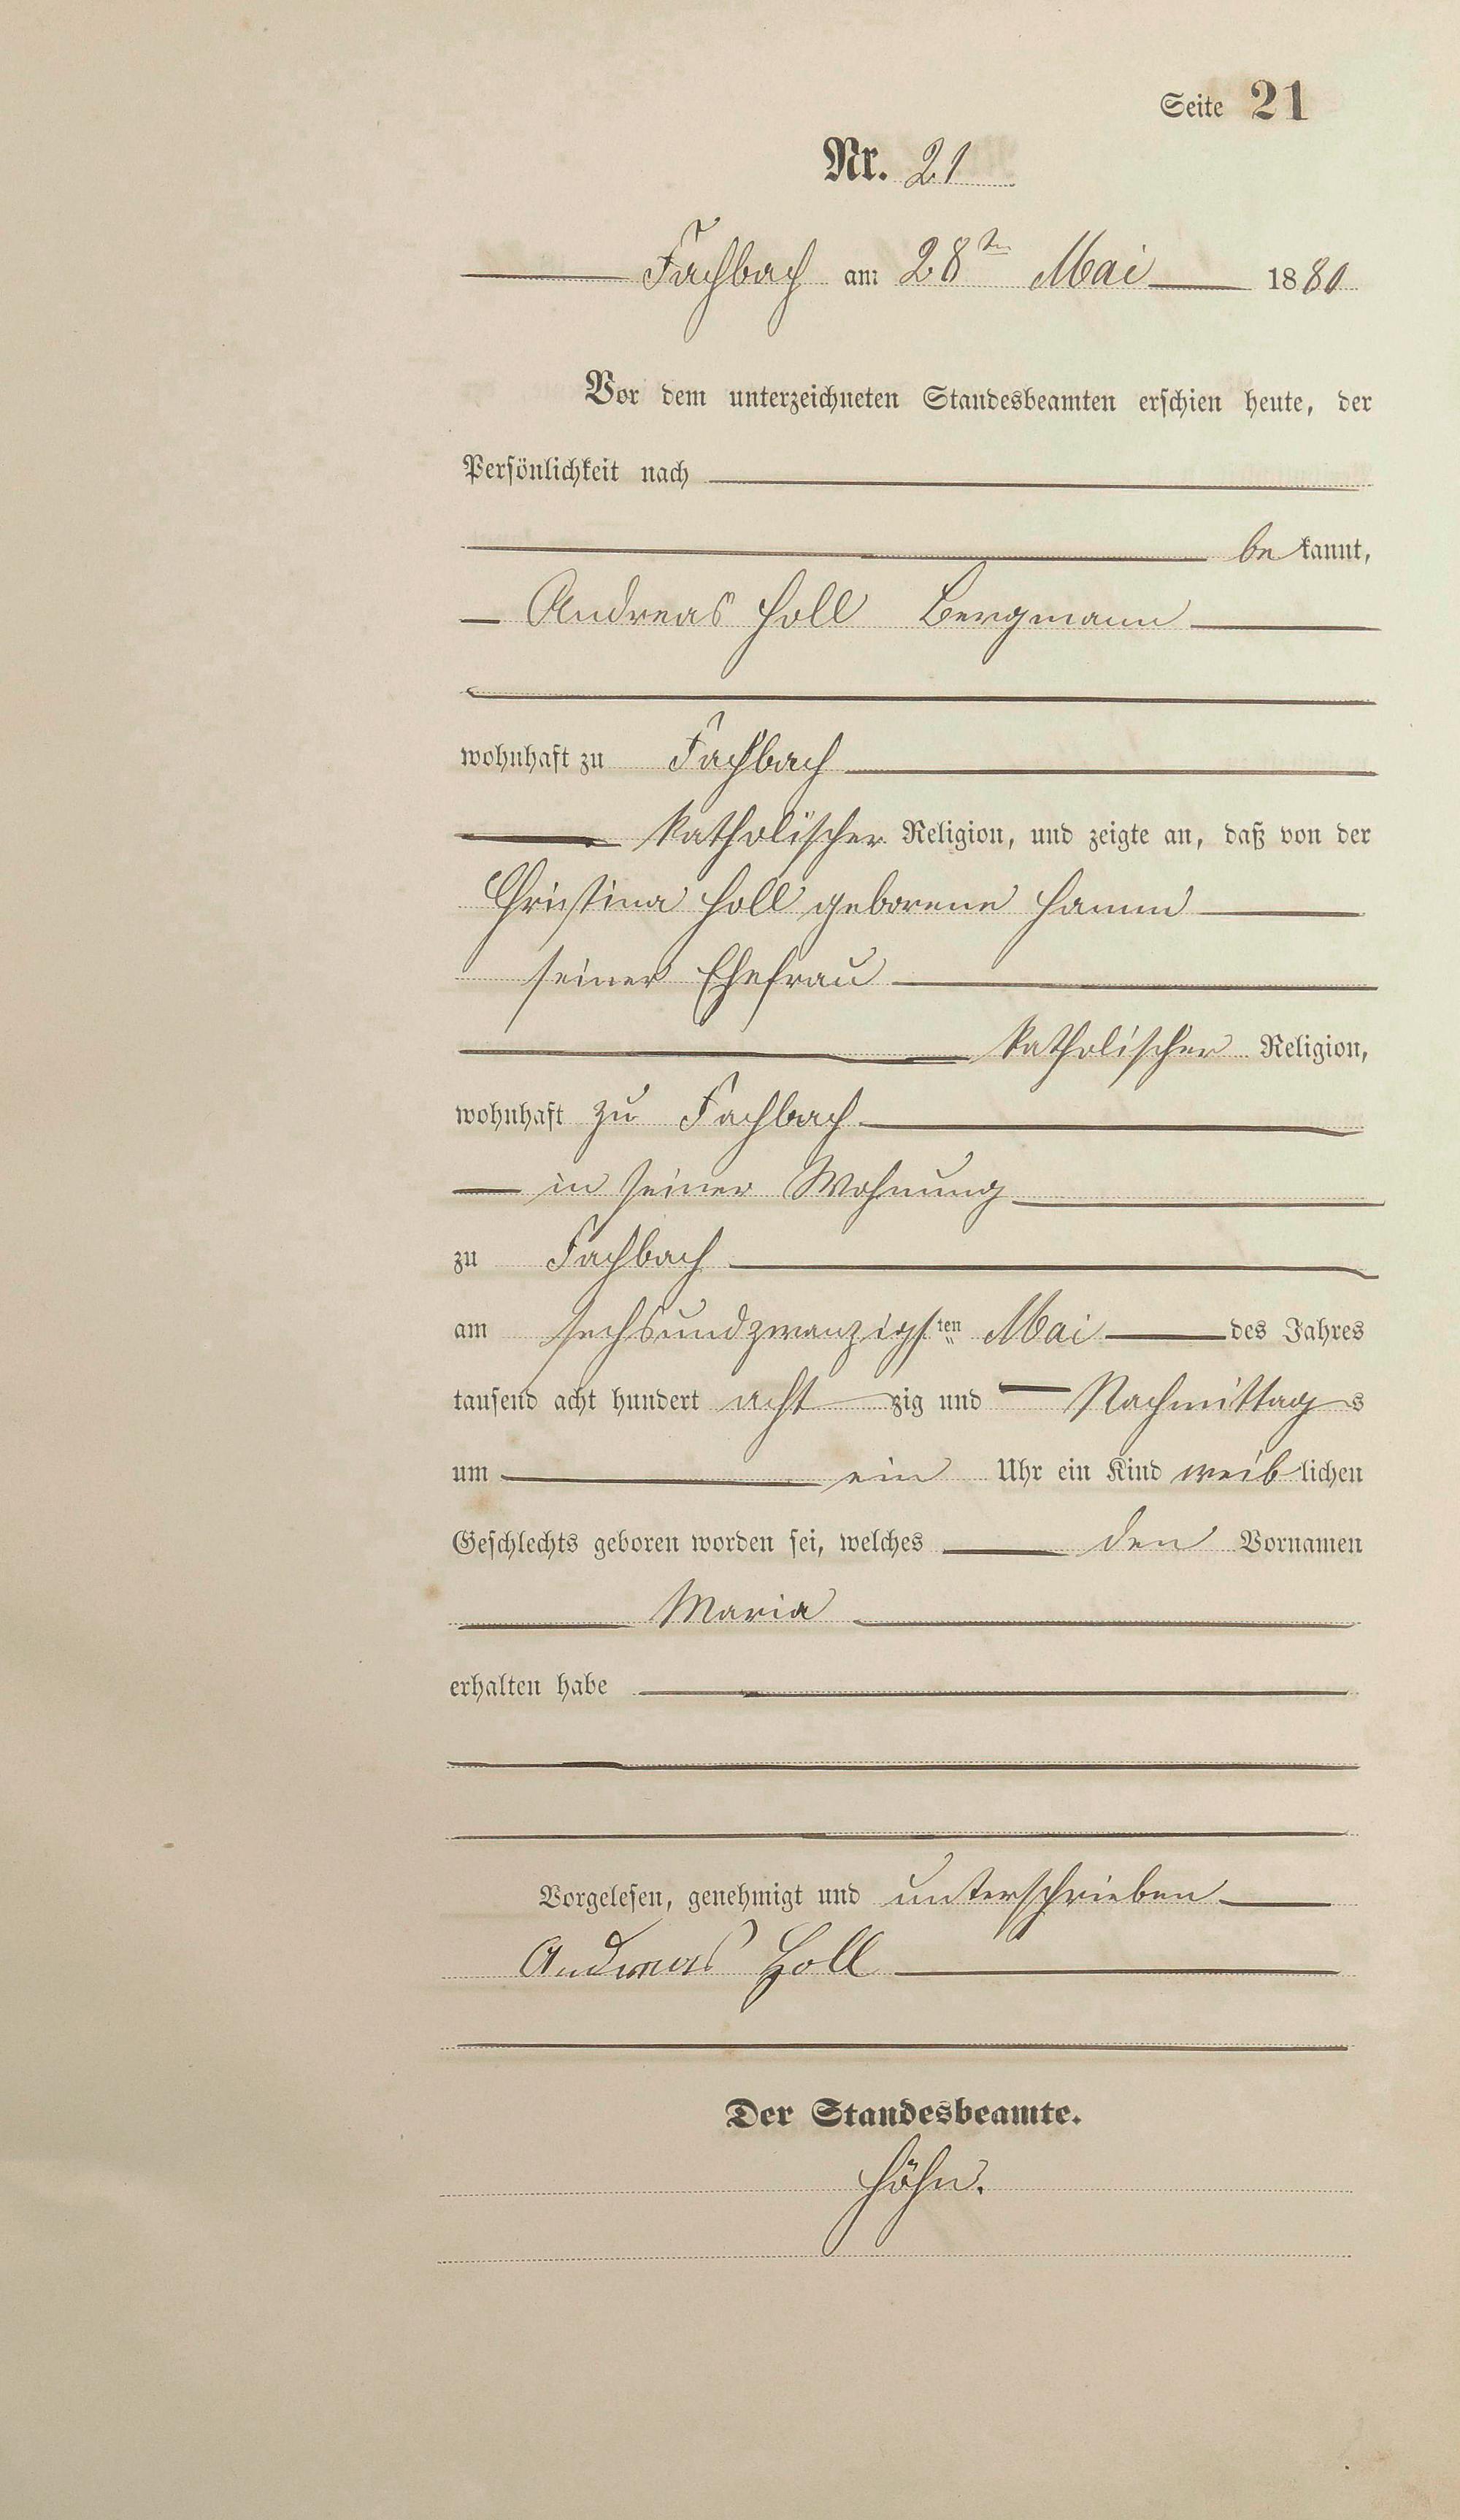 Seite 21
Nr. 21
Fachbach am 28ten Mai 1880
Vor dem unterzeichneten Standesbeamten erschien heute, der
Persönlichkeit nach
bekannt,
Andreas Holl Bergmann
wohnhaft zu Fachbach
katholischer Religion, und zeigte an, daß von der
Christina Holl geborene Hamm
seiner Ehefrau
katholischer Religion,
wohnhaft zu Fachbach
in seiner Wohnung
zu Fachbach
am sechsundzwanzigsten Mai des Jahres
tausend acht hundert achtzig und Nachmittags
um ein Uhr ein Kind weiblichen
Geschlechts geboren worden sei, welches den Vornamen
Maria
erhalten habe
Vorgelesen, genehmigt und unterschrieben
Andreas Holl
Der Standesbeamte.
Höhn.